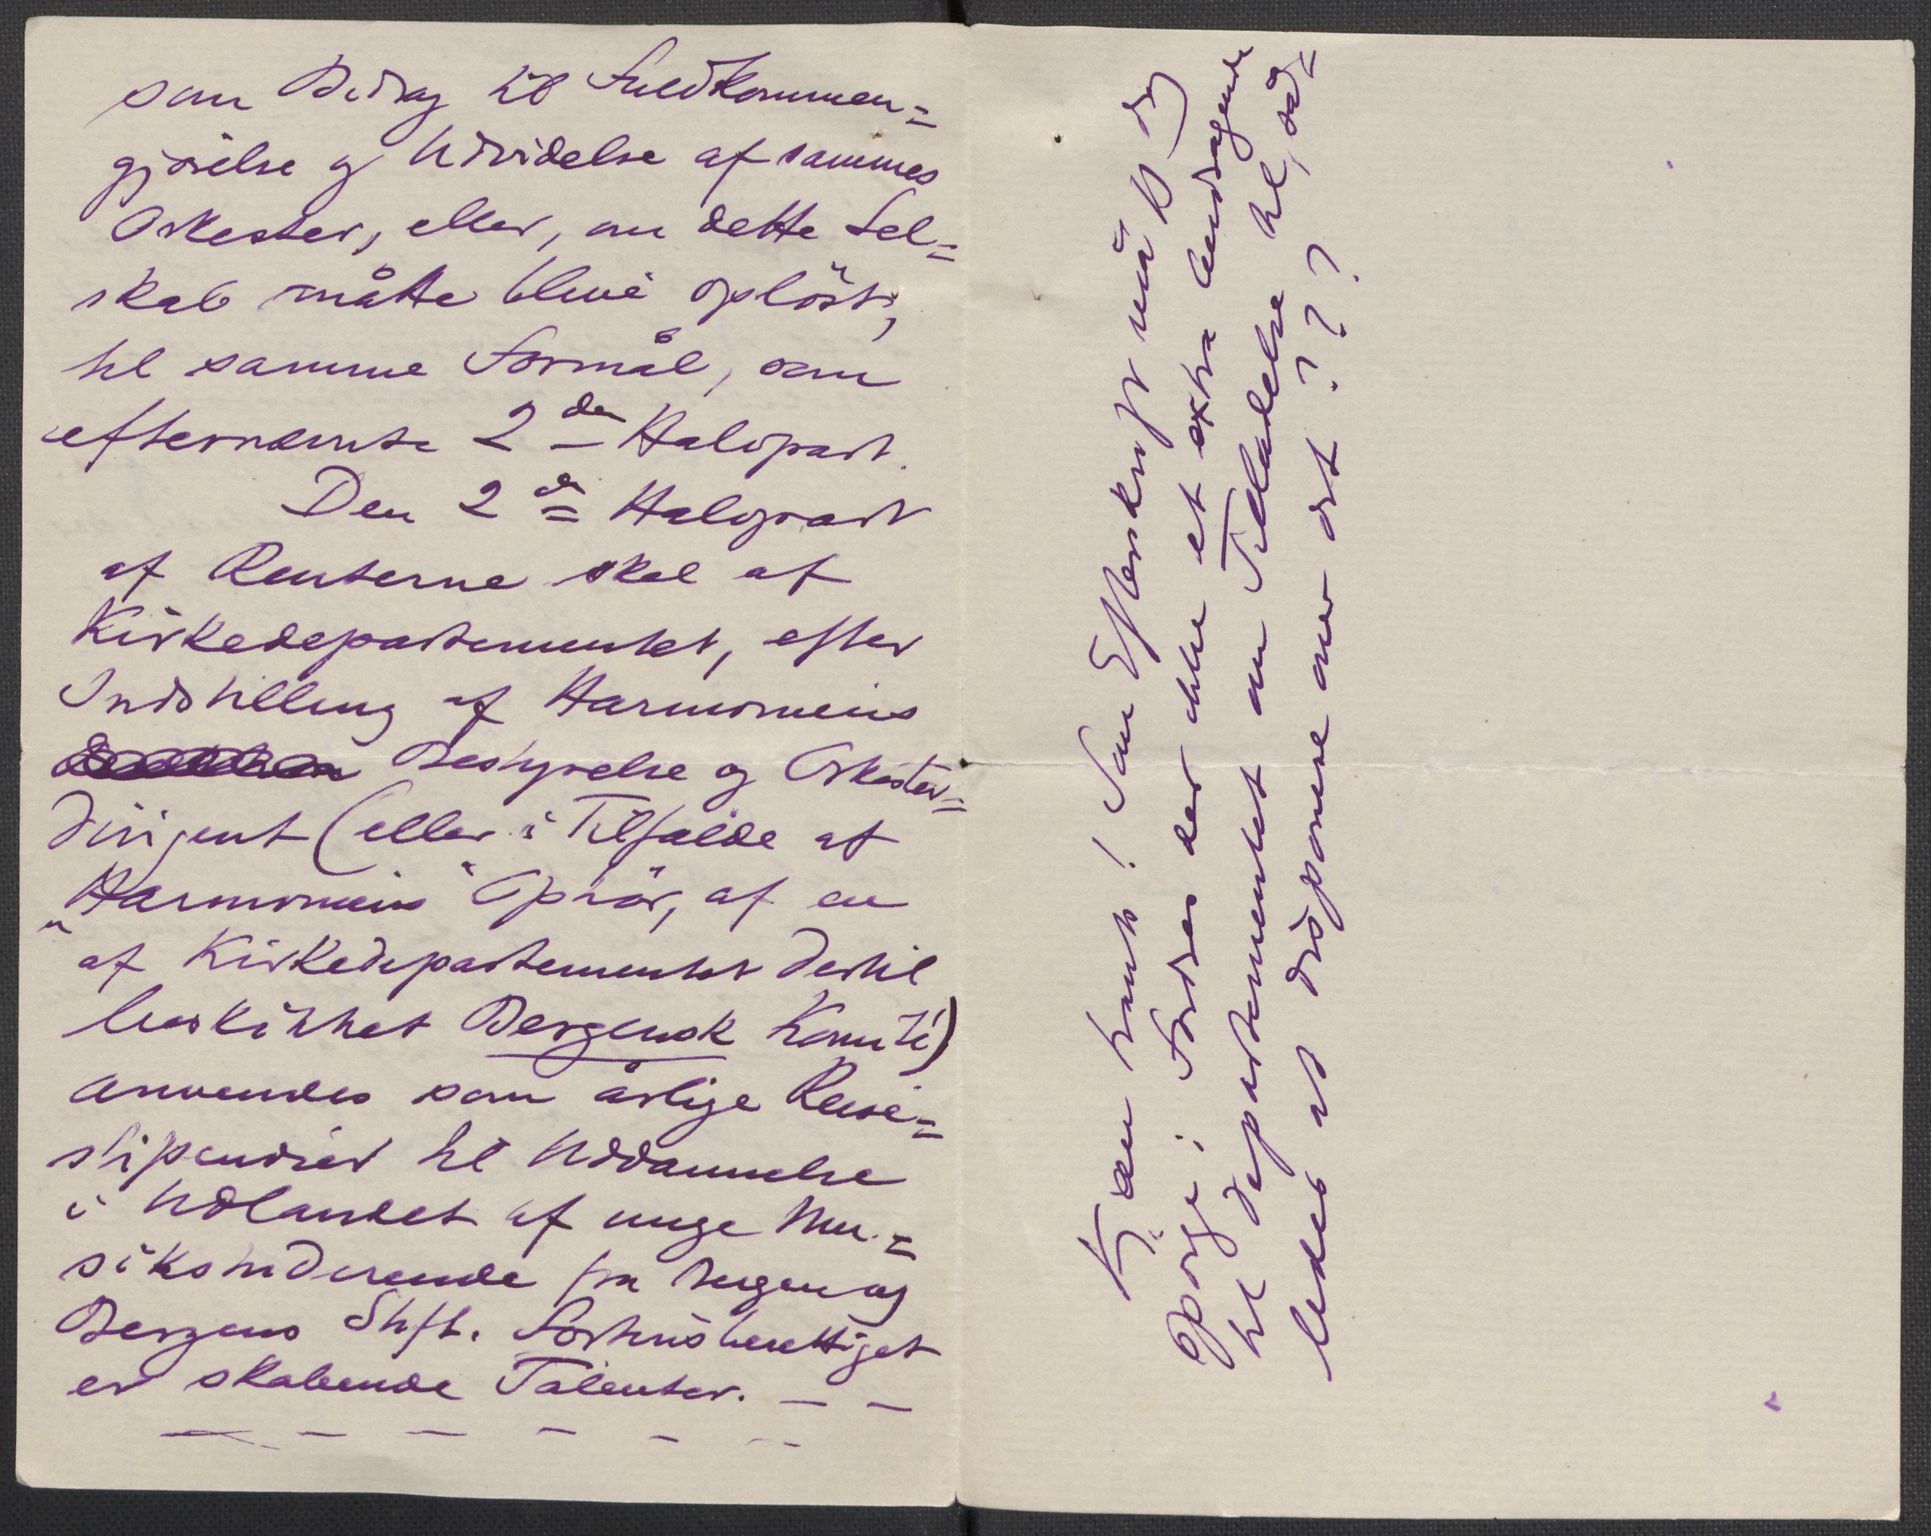 som Bidrag til Fuldkommen=
gjörelse og Udvidelse af sammes
Orkester, eller, om dette Sel=
skab måtte blive oplöst,
til samme Formål, som
efternævnte 2den Halvpart.
Den 2den Halvpart
af Renterne skal af
Kirkedepartementet, efter
Indstilling af Harmoniens
Bestyrelse og Orkester=
dirigent (eller i Tilfælde af
„Harmoniens" Ophör, af en
af Kirkedepartementet dertil
beskikket Bergensk Komité)
anvendes som årlige Reise=
stipendier til Uddannelse
i Udlandet af unge Mu=
sikstuderende fra Bergen og
Bergens Stift. Fortrinsberettiget
er skabende Talenter. — —
— — — — — —
Kjære Frants! Som Efterskrift må jeg
spörge: Fordres der ikke et extra Andragende
til Departementet om Tilladelse til, så=
ledes at disponere over det???